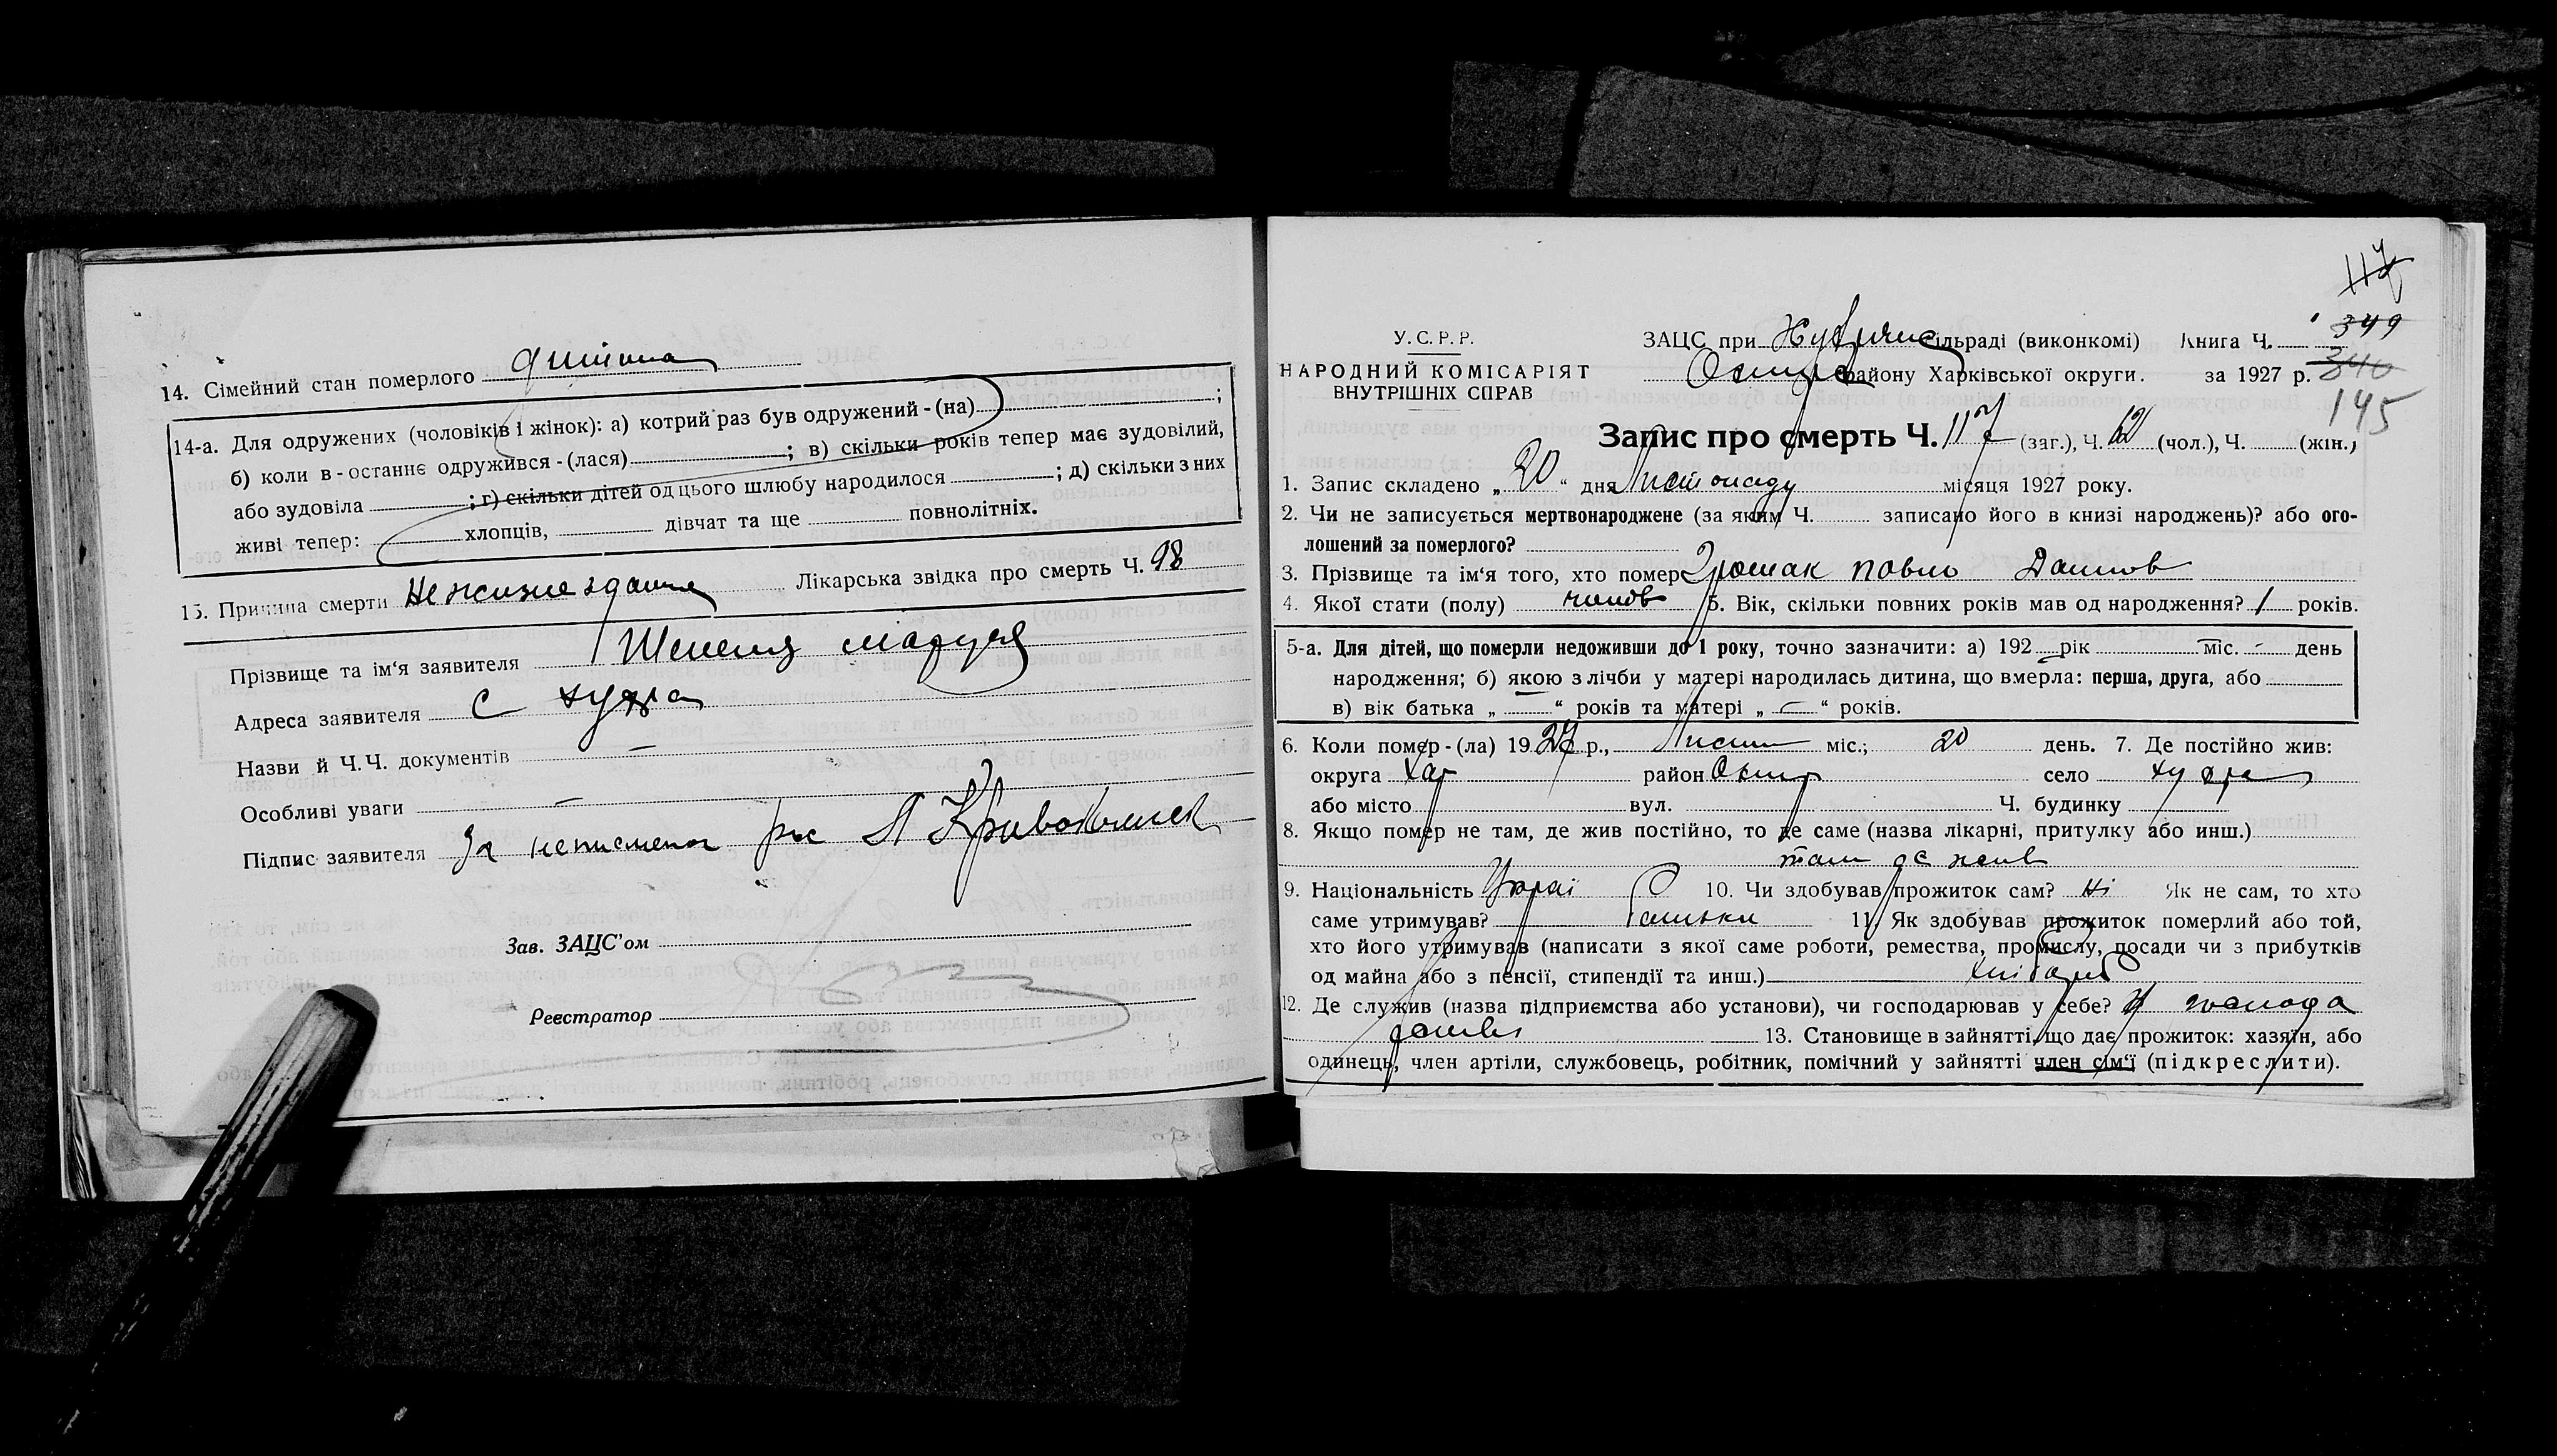 14. Сімейний стан померлого дитина
14-а. Для одружених (чоловіків і жінок): а) котрий раз був одружений - (на) ;
б) коли в-останнє одружився - (лася) ; в) скільки років тепер має зудовілий,
або зудовіла ; г) скільки дітей од цього шлюбу народилося ; д) скільки з них
живі тепер: хлопців, дівчат та ще повнолітніх.
15. Причина смерти Лікарська звідка про смерть Ч. 98
Прізвище та ім'я заявителя
Адреса заявителя с Худя
Назви й Ч.Ч. документів —
Особливі уваги —
Підпис заявителя За неписьмен рос
Зав. ЗАЦС'ом
Реєстратор
117
У.С.Р.Р.
НАРОДНИЙ КОМІСАРІЯТ
ВНУТРІШНІХ СПРАВ
ЗАЦС при сільраді (виконкомі) Книга Ч. 349
району Харківської округи. за 1927 р. 340
145
Запис про смерть Ч. 117 (заг.), Ч. 62 (чол.), Ч. (жін.)
1. Запис складено „ 20 “ дня Листопаду місяця 1927 року.
2. Чи не записується мертвонароджене (за яким Ч. записано його в книзі народжень)? або ого-
лошений за померлого?
3. Прізвище та ім'я того, хто помер Грошак Павло
4. Якої стати (полу) чолов 5. Вік, скільки повних років мав од народження? 1 років.
5-а. Для дітей, що померли недоживши до 1 року, точно зазначити: а) 192 рік міс. - день
народження; б) якою з лічби у матері народилась дитина, що вмерла: перша, друга, або
в) вік батька „ — “ років та матері „ — “ років.
6. Коли помер - (ла) 1927 р., Лист міс.; 20 день. 7. Де постійно жив:
округа Хар район Охтир село
або місто вул. Ч. будинку
8. Якщо помер не там, де жив постійно, то де саме (назва лікарні, притулку або инш.)
там де жив
9. Національність Украї 10. Чи здобував прожиток сам? Ні Як не сам, то хто
саме утримував? батьки 11. Як здобував прожиток померлий або той,
хто його утримував (написати з якої саме роботи, ремества, промислу, посади чи з прибутків
од майна або з пенсії, стипендії та инш.) хлібороб
12. Де служив (назва підприємства або установи), чи господарював у себе?
13. Становище в зайнятті, що дає прожиток: хазяїн, або
одинець, член артіли, службовець, робітник, помічний у зайнятті член сім'ї (підкреслити).